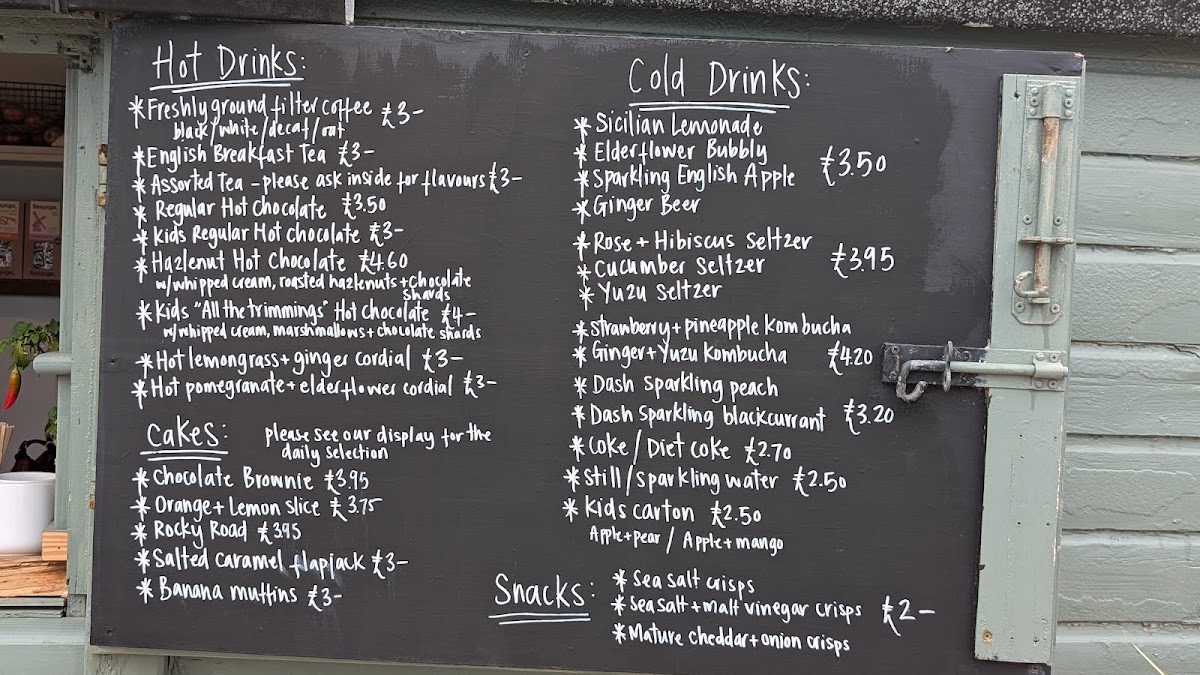 Hot Drinks:
*Freshly ground filter coffee £3-
black/white/decaf/oat
*English Breakfast Tea £3-
*Assorted Tea - please ask inside for flavours £3-
* Regular Hot Chocolate £3.50
*Kids Regular Hot Chocolate £3-
*Hazlenut Hot Chocolate £4.60
w/whipped cream, roasted hazlenuts + chocolate
shards
*Kids "All the trimmings" Hot Chocolate £4-
w/whipped cream, marshmallows + chocolate shards
*Hot lemongrass + ginger cordial £3-
*Hot pomegranate + elderflower cordial £3-
Cakes:
please see our display for the
daily selection
*Chocolate Brownie £3.95
*Orange + Lemon slice £3.75
*Rocky Road £3.95
*Salted caramel flapjack £3-
*Banana muffins £3-
Cold Drinks:
*Sicilian Lemonade
*Elderflower Bubbly
*Sparkling English Apple £3.50
*Ginger Beer
*Rose + Hibiscus Seltzer
*Cucumber Seltzer £3.95
*Yuzu Seltzer
*Strawberry + pineapple kombucha
*Ginger + Yuzu kombucha £4.20
*Dash sparkling peach
*Dash sparkling blackcurrant £3.20
*Coke / Diet coke £2.70
*Still/sparkling water £2.50
*Kids carton £2.50
Apple + pear / Apple + mango
Snacks:
*Sea salt crisps
*Sea salt + malt vinegar crisps £2-
*Mature cheddar + onion crisps